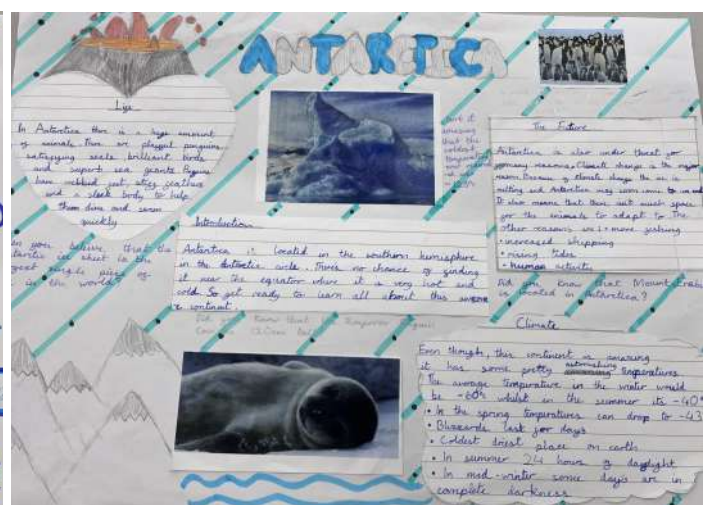 ANTARCTICA
Life
In Antarctica there is a huge amount
of animals. There are playful penguins,
satisfying seals, brilliant birds
and superb sea giants. Penguins
have webbed feet, sticy feathers
and a sleek body to help
them dive and swim
quickly
that the
ice sheet is the
single piece of
in the world?
Introduction
Antarctica is located in the southern hemisphere
in the Antarctic circle. Theres no chance of finding
it near the equator where it is very hot and
cold. So get ready to learn all about this
continent.
Did you know that the Emperor
can be 122cm tall
it
amazing
that the
coldest
temperature
The Future
Antarctica is also under threat for
many reasons. Climate change is the major
reason. Because of climate change the ice is
melting and Antarctica may soon come to an end.
It also means that there isnt much space
for the animals to adapt to. The
other reasons are: • more fishing
• increased shipping
• rising tides
• human activity
Did you know that Mount
is located in Antarctica?
Climate
Even though, this continent is amazing
it has some pretty astonishing temperatures
The average temperature in the winter would
be -60° whilst in the summer its -40°
• In the spring temperatures can drop to -43
• Blizzards last for days
• Coldest driest place on earth
• In summer 24 hours of daylight
• In mid-winter some days are in
complete darkness